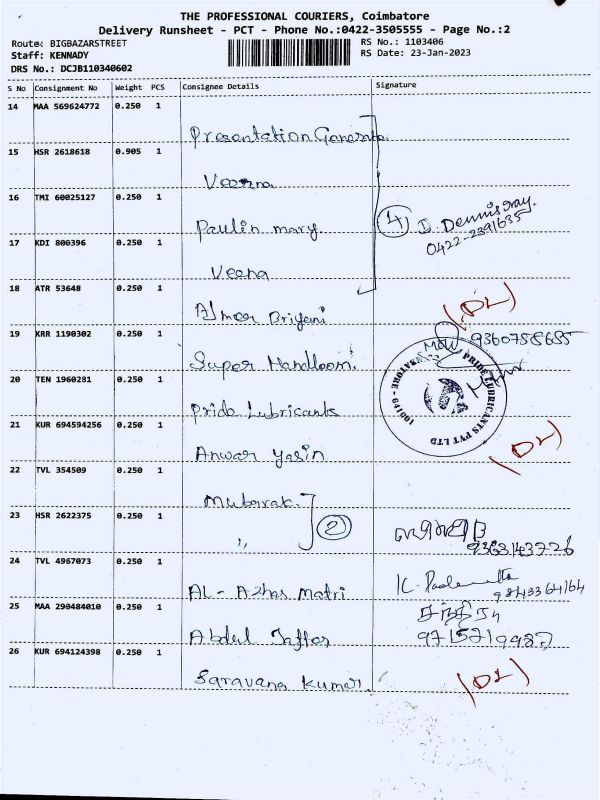 THE PROFESSIONAL COURIERS, Coimbatore
Delivery Runsheet - PCT - Phone No.:0422-3505555 - Page No.:2
Route: BIGBAZARSTREET
RS No.: 1103406
Staff: KENNADY
RS Date: 23-Jan-2023
DRS No.: DCJB110340602
S No Consignment No Weight PCS Consignee Details Signature
14 MAA 569624772 0.250 1
Presentation
15 HSR 2618618 0.905 1
Veena
16 TMI 60025127 0.250 1
Paulin mary.
4 D. Dennisray.
0422-2391635
17 KDI 800396 0.250 1
Veena
18 ATR 53648 0.250 1
Ajmeer Briyani
(DL)
19 KRR 1190302 0.250 1
9360788685
Super Handloom.
20 TEN 1960281 0.250 1
Pride Lubricants
PRIDE LUBRICANTS PVT LTD
21 KUR 694594256 0.250 1
Anwar Yasin
(DL)
22 TVL 354509 0.250 1
Mubarak.
23 HSR 2622375 0.250 1
〃 2
9363143726
24 TVL 4967073 0.250 1
AL - Azhar Matri
9843364164
25 MAA 290484010 0.250 1
Abdul Jaffar
9715719987
26 KUR 694124398 0.250 1
Saravana Kumar.
(DL)